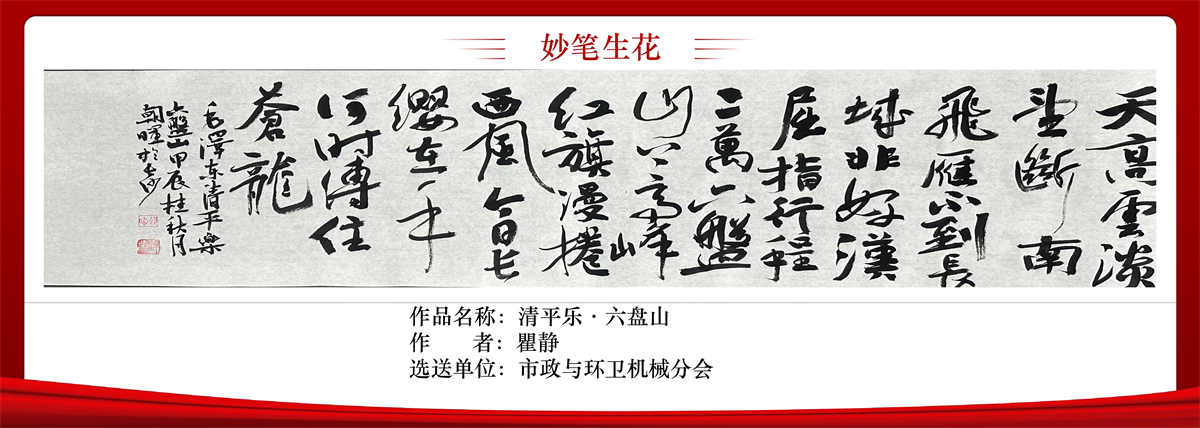 妙笔生花
天高雲淡
望斷南
飛雁不到長
城非好漢
屈指行程
二萬六盤
山上高峰
红旗漫捲
西風今日長
缨在手
何時縛住
蒼龍
毛澤東清平樂
六盤山甲辰桂秋月
朝暉於長沙
作品名称：清平乐·六盘山
作 者：瞿静
选送单位：市政与环卫机械分会